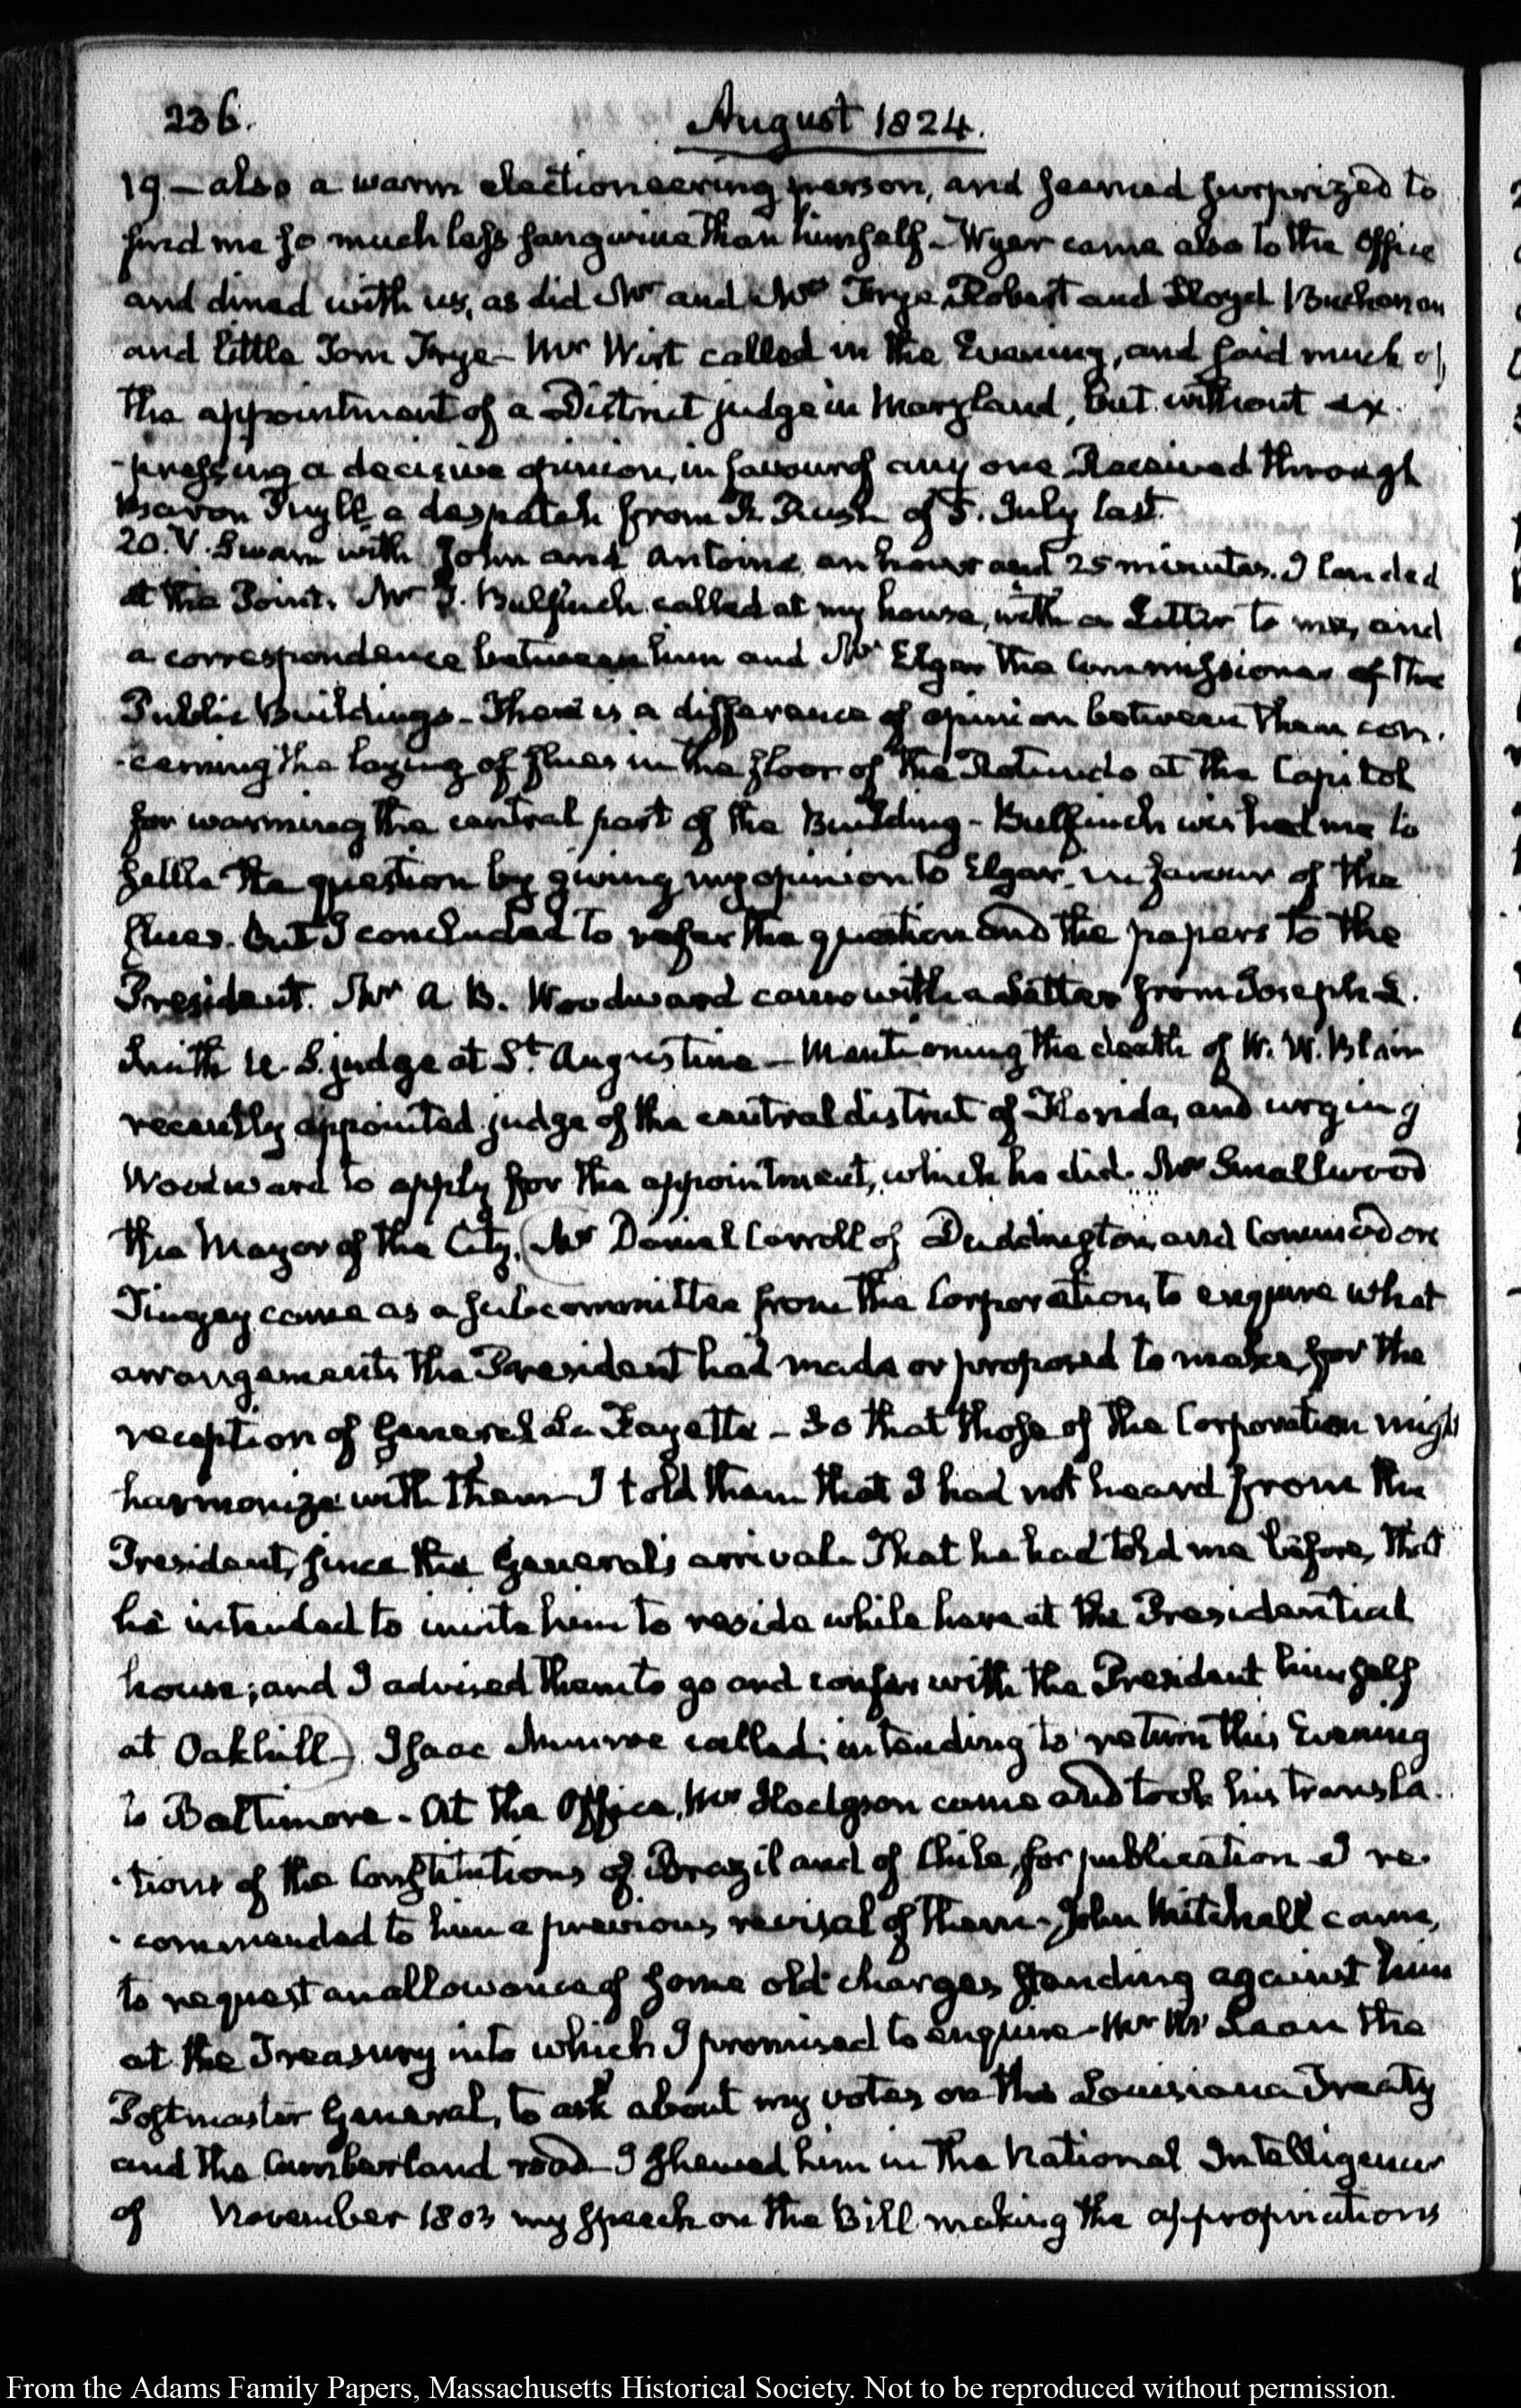 236.
August 1824.
19 — also a warm electioneering person, and seemed surprized to
find me so much less sanguine than himself — Wyer came also to the Office
and dined with us, as did Mr and Mrs Frye, Robert and Lloyd Buchanan
and little Tom Frye — Mr Wirt called in the Evening, and said much of
the appointment of a District judge in Maryland, but without ex-
-pressing a decisive opinion, in favour of any one Received through
Baron Tuyll a despatch from R. Rush of 5. July last.
20. V. Swam with John and Antoine, an hour and 25 minutes. I landed
at the Point. Mr Bulfinch called at my house, with a Letter to me, and
a correspondence between him and Mr Elgar the Commissioner of the
Public Buildings — There is a difference of opinion between them con-
-cerning the laying of flues in the floor of the Rotundo at the Capitol
for warming the central part of the Building — Bulfinch wished me to
settle the question by giving my opinion to Elgar, in favour of the
flues. But I concluded to refer the question and the papers to the
President. Mr A. B. Woodward came with a Letter from Joseph L.
Smith U.S. judge at St. Augustine — Mentioning the death of W. W. Blair
recently appointed judge of the central district of Florida, and urging
Woodward to apply for the appointment, which he did. Mr Smallwood
the Mayor of the City, (Mr Daniel Carroll of Duddington, and Commodore
Tingey came as a subcommittee from the Corporation, to enquire what
arrangements the President had made or proposed to make, for the
reception of General La Fayette — So that those of the Corporation might
harmonize with them — I told them that I had not heard from the
President, since the General's arrival. That he had told me before, that
he intended to invite him to reside while here at the Presidential
house; and I advised them to go and confer with the President himself
at Oakhill). Isaac Munroe called; intending to return this Evening
to Baltimore. At the Office, Mr Hodgson came and took his transla-
-tions of the Constitutions of Brazil and of Chile, for publication — I re-
-commended to him a previous revisal of them — John Mitchell came,
to request an allowance of some old charges standing against him
at the Treasury into which I promised to enquire — Mr McLean the
Postmaster General, to ask about my votes on the Louisiana Treaty
and the Cumberland road — I shewed him in the National Intelligencer
of November 1803 my speech on the Bill making the appropriations
From the Adams Family Papers, Massachusetts Historical Society. Not to be reproduced without permission.